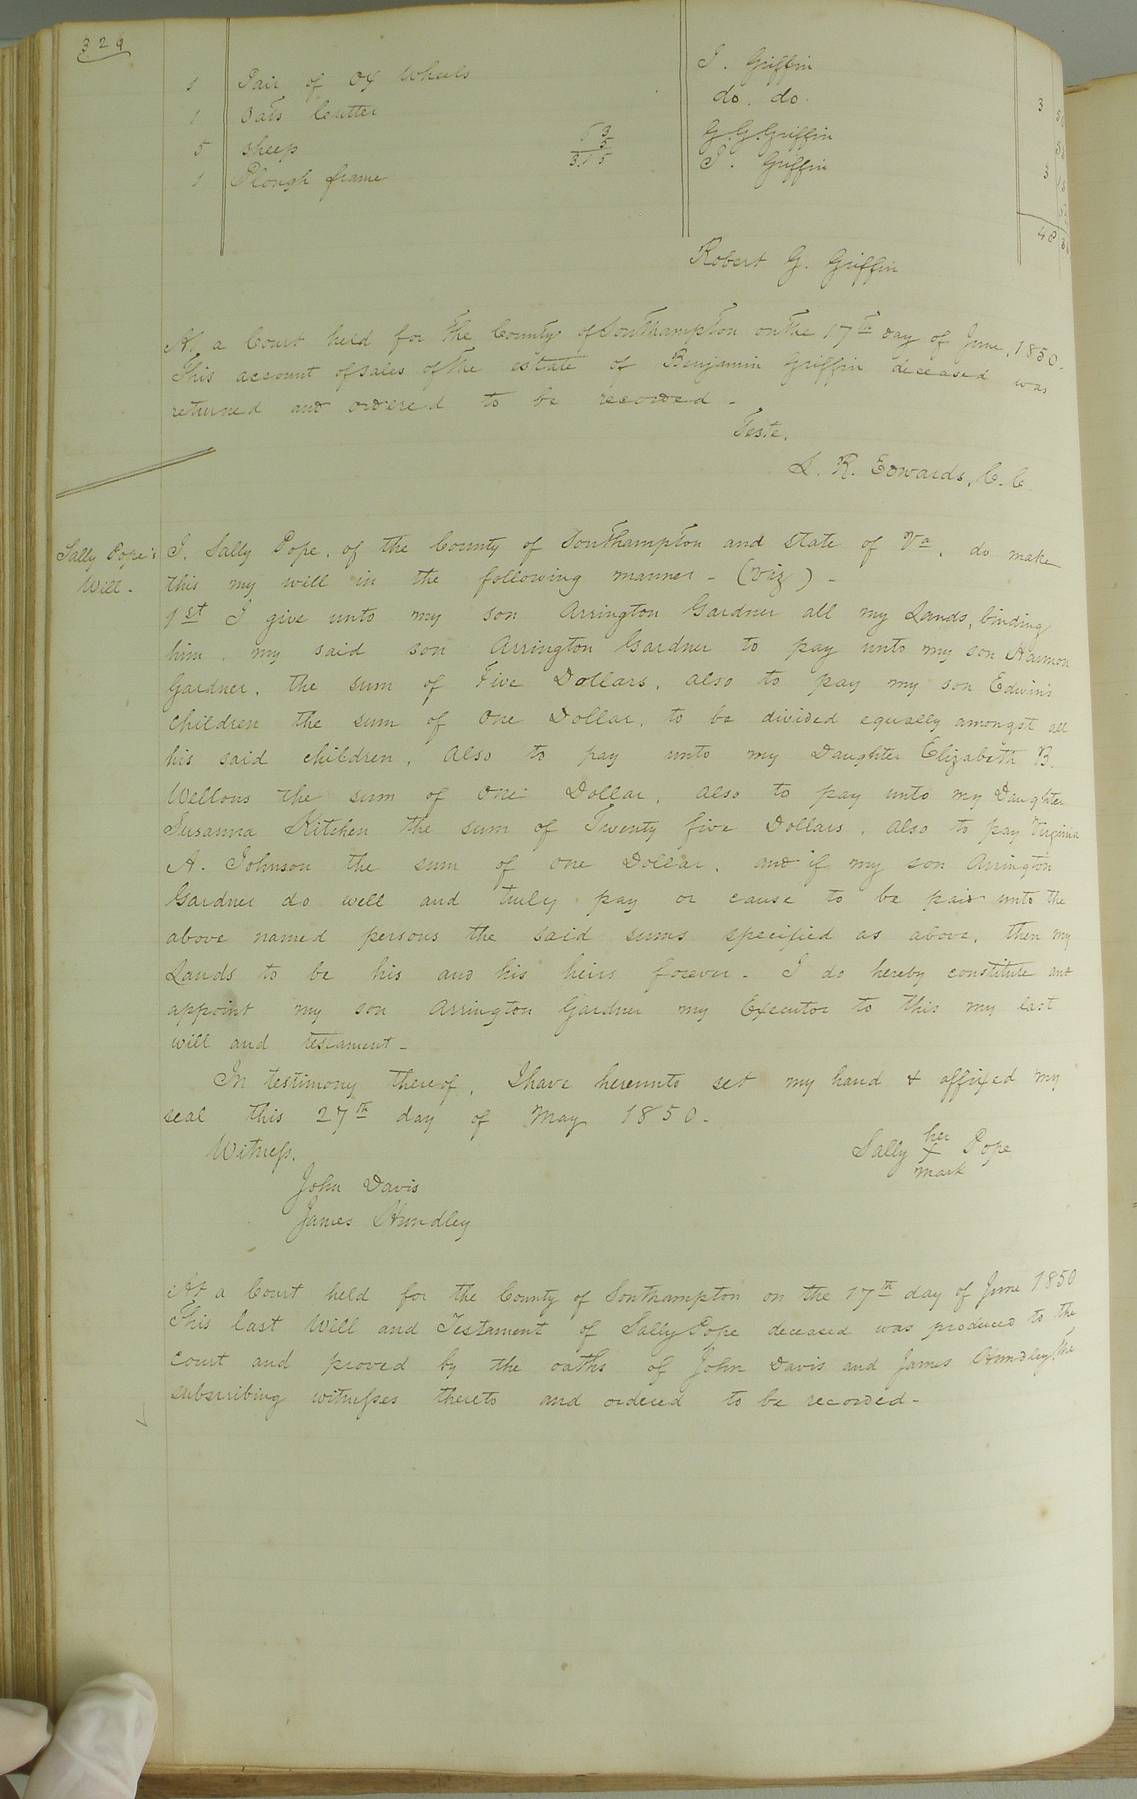 329
1 Pair of Ox Wheels J. Griffin 3
1 Oats Cutter do. do.
5 Sheep 63 G. G. Griffin 3
5
3.15
1 Plough frame J. Griffin
48
Robert G. Griffin
At a Court held for the County of Southampton on the 17th day of June, 1850.
This account of sales of the estate of Benjamin Griffin deceased was
returned and ordered to be recorded -
Teste,
L. R. Edwards, C. C.
Sally Pope's
Will -
I, Sally Pope, of the County of Southampton and State of Va, do make
this my will in the following manner - (viz) -
1st I give unto my son Arrington Gardner all my Lands, binding
him, my said son Arrington Gardner to pay unto my son Harmon
Gardner, the sum of Five Dollars, also to pay my son Edwin's
children the sum of One Dollar, to be divided equally amongst all
his said children, also to pay unto my Daughter Elizabeth B.
Wellons the sum of One Dollar, also to pay unto my Daughter
Susanna Kitchen the sum of Twenty five Dollars, also to pay Virginia
A. Johnson the sum of one Dollar, and if my son Arrington
Gardner do well and truly pay or cause to be paid unto the
above named persons the said sums specified as above, then my
Lands to be his and his heirs forever - I do hereby constitute and
appoint my son Arrington Gardner my Executor to this my last
will and testament -
In testimony thereof, I have hereunto set my hand & affixed my
seal this 27th day of May 1850.
Witness,
Sally her X mark Pope
John Davis
James Hundley
At a Court held for the County of Southampton on the 17th day of June 1850
This last Will and Testament of Sally Pope deceased was produced to the
Court and proved by the oaths of John Davis and James Hundley, the
subscribing witnesses thereto and ordered to be recorded -